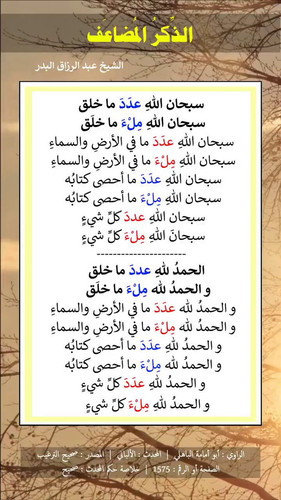 الذِّكرُ المُضاعف
الشيخ عبد الرزاق البدر
سبحان اللهِ عدَدَ ما خلق
سبحان اللهِ مِلْءَ ما خلَق
سبحان اللهِ عدَدَ ما في الأرضِ والسماءِ
سبحان اللهِ مِلْءَ ما في الأرضِ والسماءِ
سبحان اللهِ عدَدَ ما أحصى كتابُه
سبحان اللهِ مِلْءَ ما أحصى كتابُه
سبحان اللهِ عددَ كلِّ شيءٍ
سبحانَ اللهِ مِلْءَ كلِّ شيءٍ
----------------------
الحمدُ للهِ عددَ ما خلق
و الحمدُ لله مِلْءَ ما خلَق
و الحمدُ للهِ عدَدَ ما في الأرضِ والسماءِ
و الحمدُ للهِ مِلْءَ ما في الأرضِ والسماءِ
و الحمدُ للهِ عدَدَ ما أحصى كتابُه
و الحمدُ للهِ مِلْءَ ما أحصى كتابُه
و الحمدُ للهِ عددَ كلِّ شيءٍ
و الحمدُ للهِ مِلْءَ كلِّ شيءٍ
الراوي : أبو أمامة الباهلي | المحدث : الألباني | المصدر : صحيح الترغيب
الصفحة أو الرقم : 1575 | خلاصة حكم المحدث : صحيح